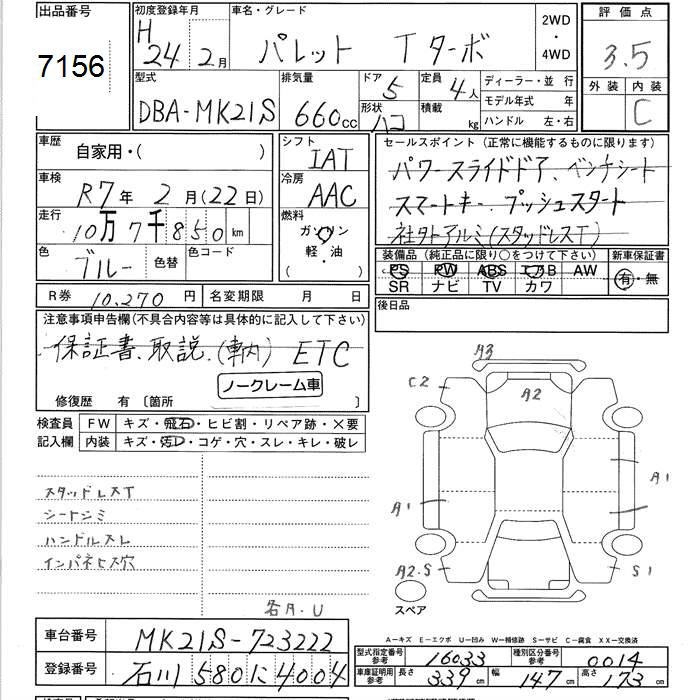 出品番号
7156
初度登録年月
H
24 2月
車名・グレード
パレット Tターボ
2WD
・
4WD
評価点
3.5
外装 内装
C
型式
DBA-MK21S
排気量
660cc
ドア
5
形状
ハコ
定員
4人
積載
kg
ディーラー・並行
モデル年式 年
ハンドル 左・右
車歴
自家用・( )
車検
R7年2月(22日)
走行
10万7千850km
色
ブルー
色替
色コード
シフト
IAT
冷房
AAC
燃料
ガソリン
軽・油
セールスポイント (正常に機能するものに限ります)
パワースライドドア、ベンチシート
スマートキー、プッシュスタート
社外アルミ(スタッドレスT)
装備品 (純正品に限り○をつけて下さい)
PS PW ABS エアB AW
SR ナビ TV カワ
新車保証書
有・無
後日品
R券 10,270円
名変期限 月 日
注意事項申告欄(不具合内容等は具体的に記入して下さい)
保証書、取説、(車内) ETC
ノークレーム車
修復歴 有〔箇所 〕
検査員
記入欄
FW キズ・飛石・ヒビ割・リペア跡・×要
内装 キズ・汚レ・コゲ・穴・スレ・キレ・破レ
スタッドレスT
シートシミ
ハンドルスレ
インパネビス穴
各A・U
A3
C2
A2
A1
A1
A2.S
S1
スペア
A-キズ E-エクボ U-凹み W-補修跡 S-サビ C-腐食 XX-交換済
車台番号
MK21S-723222
登録番号
石川 580に4004
型式指定番号
参考
16033
種別区分番号
参考
0014
車庫証明用
参考
長さ
339cm
幅
147cm
高さ
173cm